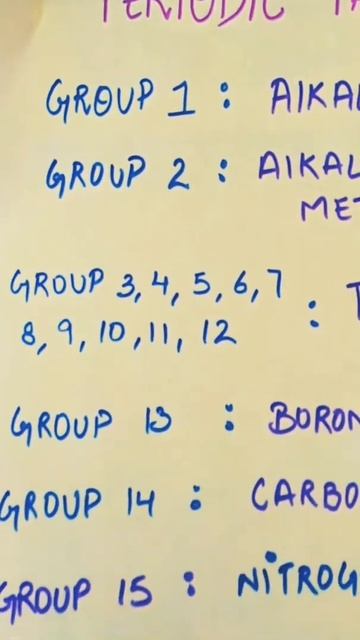 PERIODIC TA
GROUP 1 : AlKA
GROUP 2 : AlKAL
MET
GROUP 3, 4, 5, 6, 7
8, 9, 10, 11, 12 : T
GROUP 13 : BORON
GROUP 14 : CARBO
GROUP 15 : NiTROG